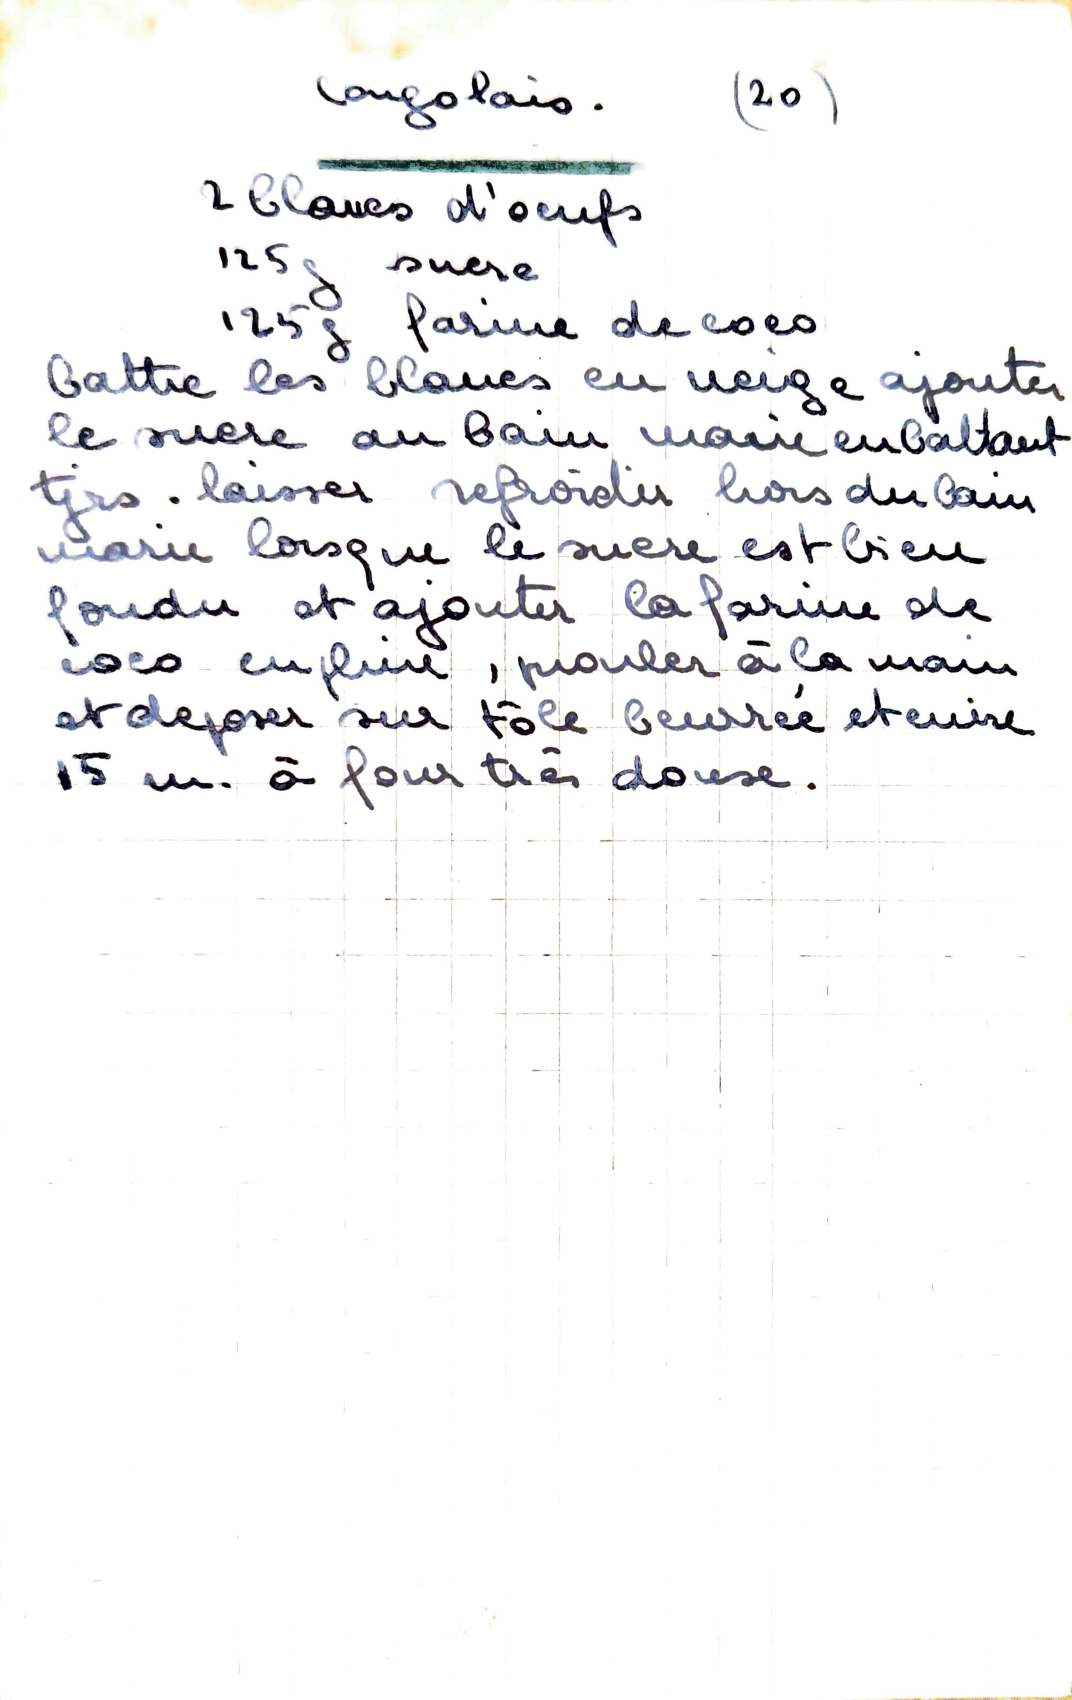 Congolais. (20)
2 blancs d'oeufs
125g sucre
125g farine de coco
battre les blancs en neige ajouter
le sucre au bain marie en battant
tjrs. laisser refroidir hors du bain
marie lorsque le sucre est bien
fondu et ajouter la farine de
coco en pluie, mouler à la main
et deposer sur tôle beurrée et cuire
15 m. à four très douse.